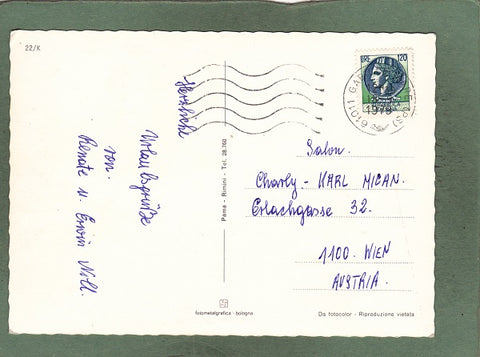 22/K
Herzliche
Urlaubsgrüße
von
Renate u. Erwin Noll.
Pama - Rimini - Tel. 28.760
fotometalgrafica - bologna
LIRE 120
61011 GA
(PS)
1979
Salon.
Charly - KARL MICAN.
Erlachgasse 32.
1100. WIEN
AUSTRIA.
Da fotocolor - Riproduzione vietata